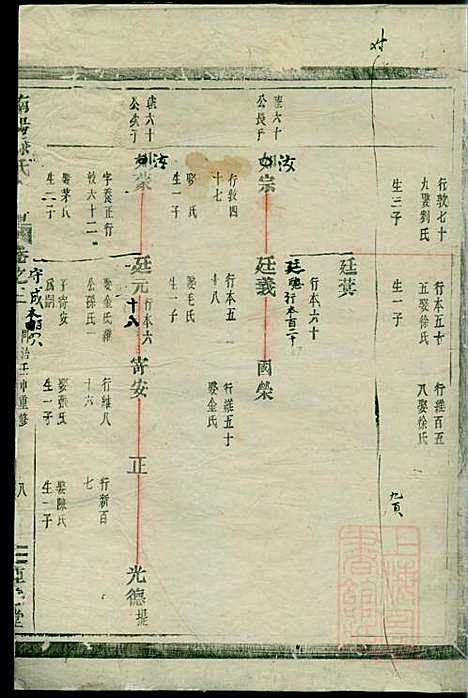 行敦七十
九娶劉氏
生三子
行本五十
五娶徐氏
生一子
行維百五
八娶徐氏
九頁
廷貴
行本六十
廷聰行本百二十
公長子
汝宗
行敦四
十七
娶 氏
生一子
廷義
行本五
十八
娶毛氏
生一子
國榮
行維五十
娶金氏
公次子
汝
字養正行
敦六十二
娶茅氏
生二子
廷元
行本六
十八
娶金氏維
公孫氏一
子寄安
為嗣
寄安
行維八
十六
娶張氏
生一子
正
行新百
七
娶陳氏
生一子
光德
堤
守成
同治壬申重修
八
上海